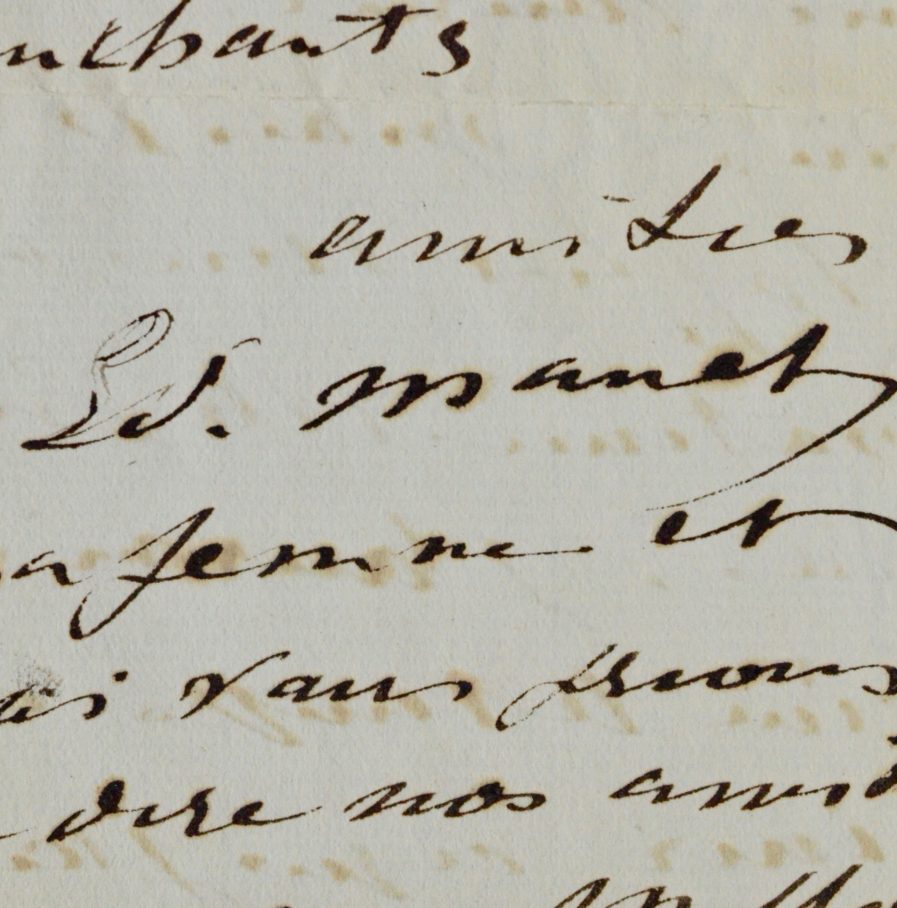 nchants
amities
Ed. Manet
a femme et
vous prions
dire nos amit